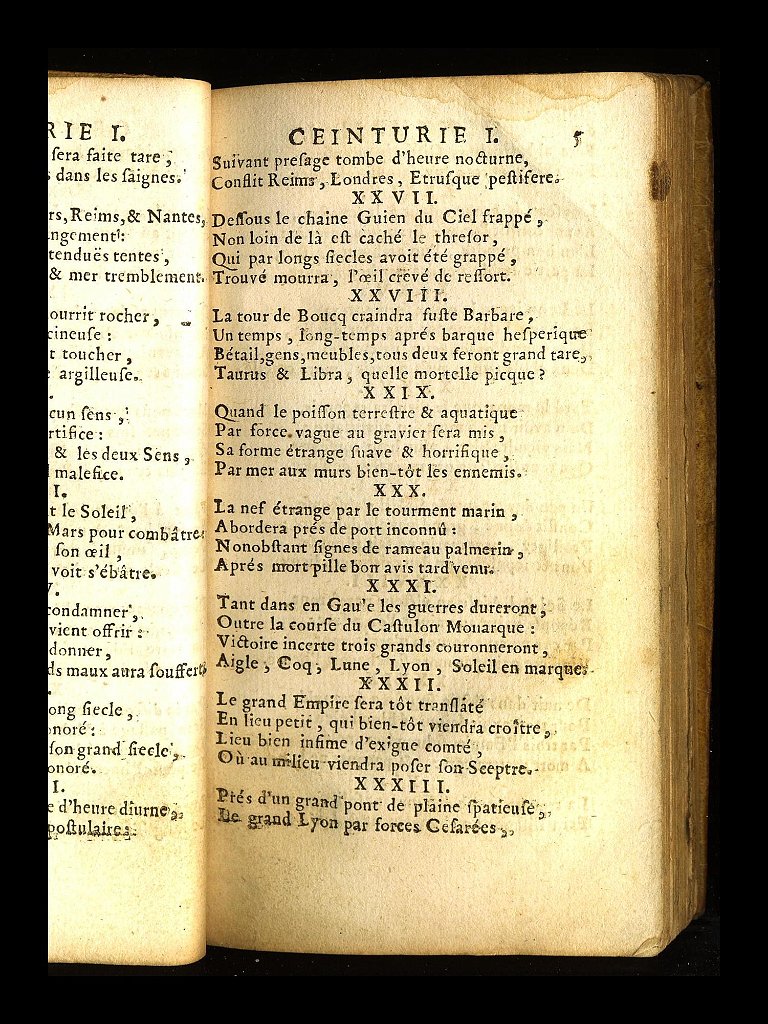 RIE I.
sera faite tare,
dans les saignes.
rs, Reims, & Nantes,
ngement:
tenduës tentes,
& mer tremblement.
ourrit rocher,
cineuse :
t toucher,
argilleuse.
cun sens,
rtifice :
& les deux Sens,
malefice.
I.
t le Soleil,
Mars pour combâtre:
son œil,
voit s'ébâtre.
condamner,
vient offrir :
donner,
ds maux aura souffert,
ong siecle,
onoré :
son grand siecle,
onoré.
I.
e d'heure diurne,
postulaire:
CEINTURIE I. 5
Suivant presage tombe d'heure nocturne,
Conflit Reims, Londres, Etrusque pestifere.
XXVII.
Dessous le chaine Guien du Ciel frappé,
Non loin de là est caché le thresor,
Qui par longs siecles avoit été grappé,
Trouvé mourra, l'œil crevé de ressort.
XXVIII.
La tour de Boucq craindra fuste Barbare,
Un temps, long-temps aprés barque hesperique
Bétail,gens,meubles,tous deux feront grand tare,
Taurus & Libra, quelle mortelle picque ?
XXIX.
Quand le poisson terrestre & aquatique
Par force vague au gravier sera mis,
Sa forme étrange suave & horrifique,
Par mer aux murs bien-tôt les ennemis.
XXX.
La nef étrange par le tourment marin,
Abordera prés de port inconnû :
Nonobstant signes de rameau palmerin,
Aprés mort pille bon avis tard venu.
XXXI.
Tant dans en Gau'e les guerres dureront,
Outre la course du Castulon Monarque :
Victoire incerte trois grands couronneront,
Aigle, Coq, Lune, Lyon, Soleil en marque.
XXXII.
Le grand Empire sera tôt translâté
En lieu petit, qui bien-tôt viendra croître,
Lieu bien infime d'exigue comté,
Où au milieu viendra poser son Sceptre.
XXXIII.
Prés d'un grand pont de plaine spatieuse,
Le grand Lyon par forces Cesarées,